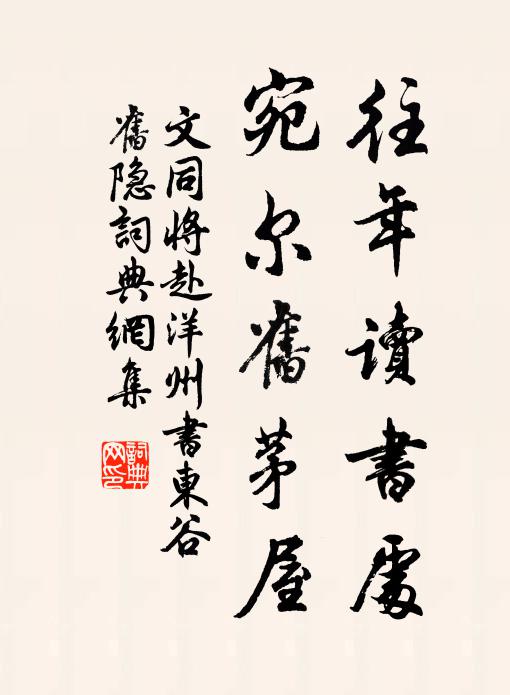 往年讀書處
宛尔舊茅屋
文同將赴洋州書東谷
舊隐詞典網集
詞典網印